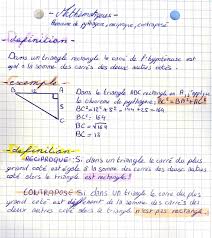 - Mathématiques -
théorème de pythagore, réciproque, contraposé
- définition -
Dans un triangle rectangle le carré de l'hypoténuse est
égal à la somme des carrés des deux autres côtés.
- exemple -
B 12 A
5
C
Dans le triangle ABC rectangle en A, j'applique
le théorème de pythagore: BC² = BA² + AC²
BC² = 12² + 5² = 144 + 25 = 169
BC² = 169
BC = √169
BC = 13
- définition -
RECIPROQUE: Si dans un triangle le carré du plus
grand coté est égale à la somme des carrés des deux autres
coté alors le triangle est rectangle!
CONTRAPOSÉ Si dans un triangle le carré du plus
grand coté est différent de la somme des carrés des
deux autres coté alors le triangle n'est pas rectangle.